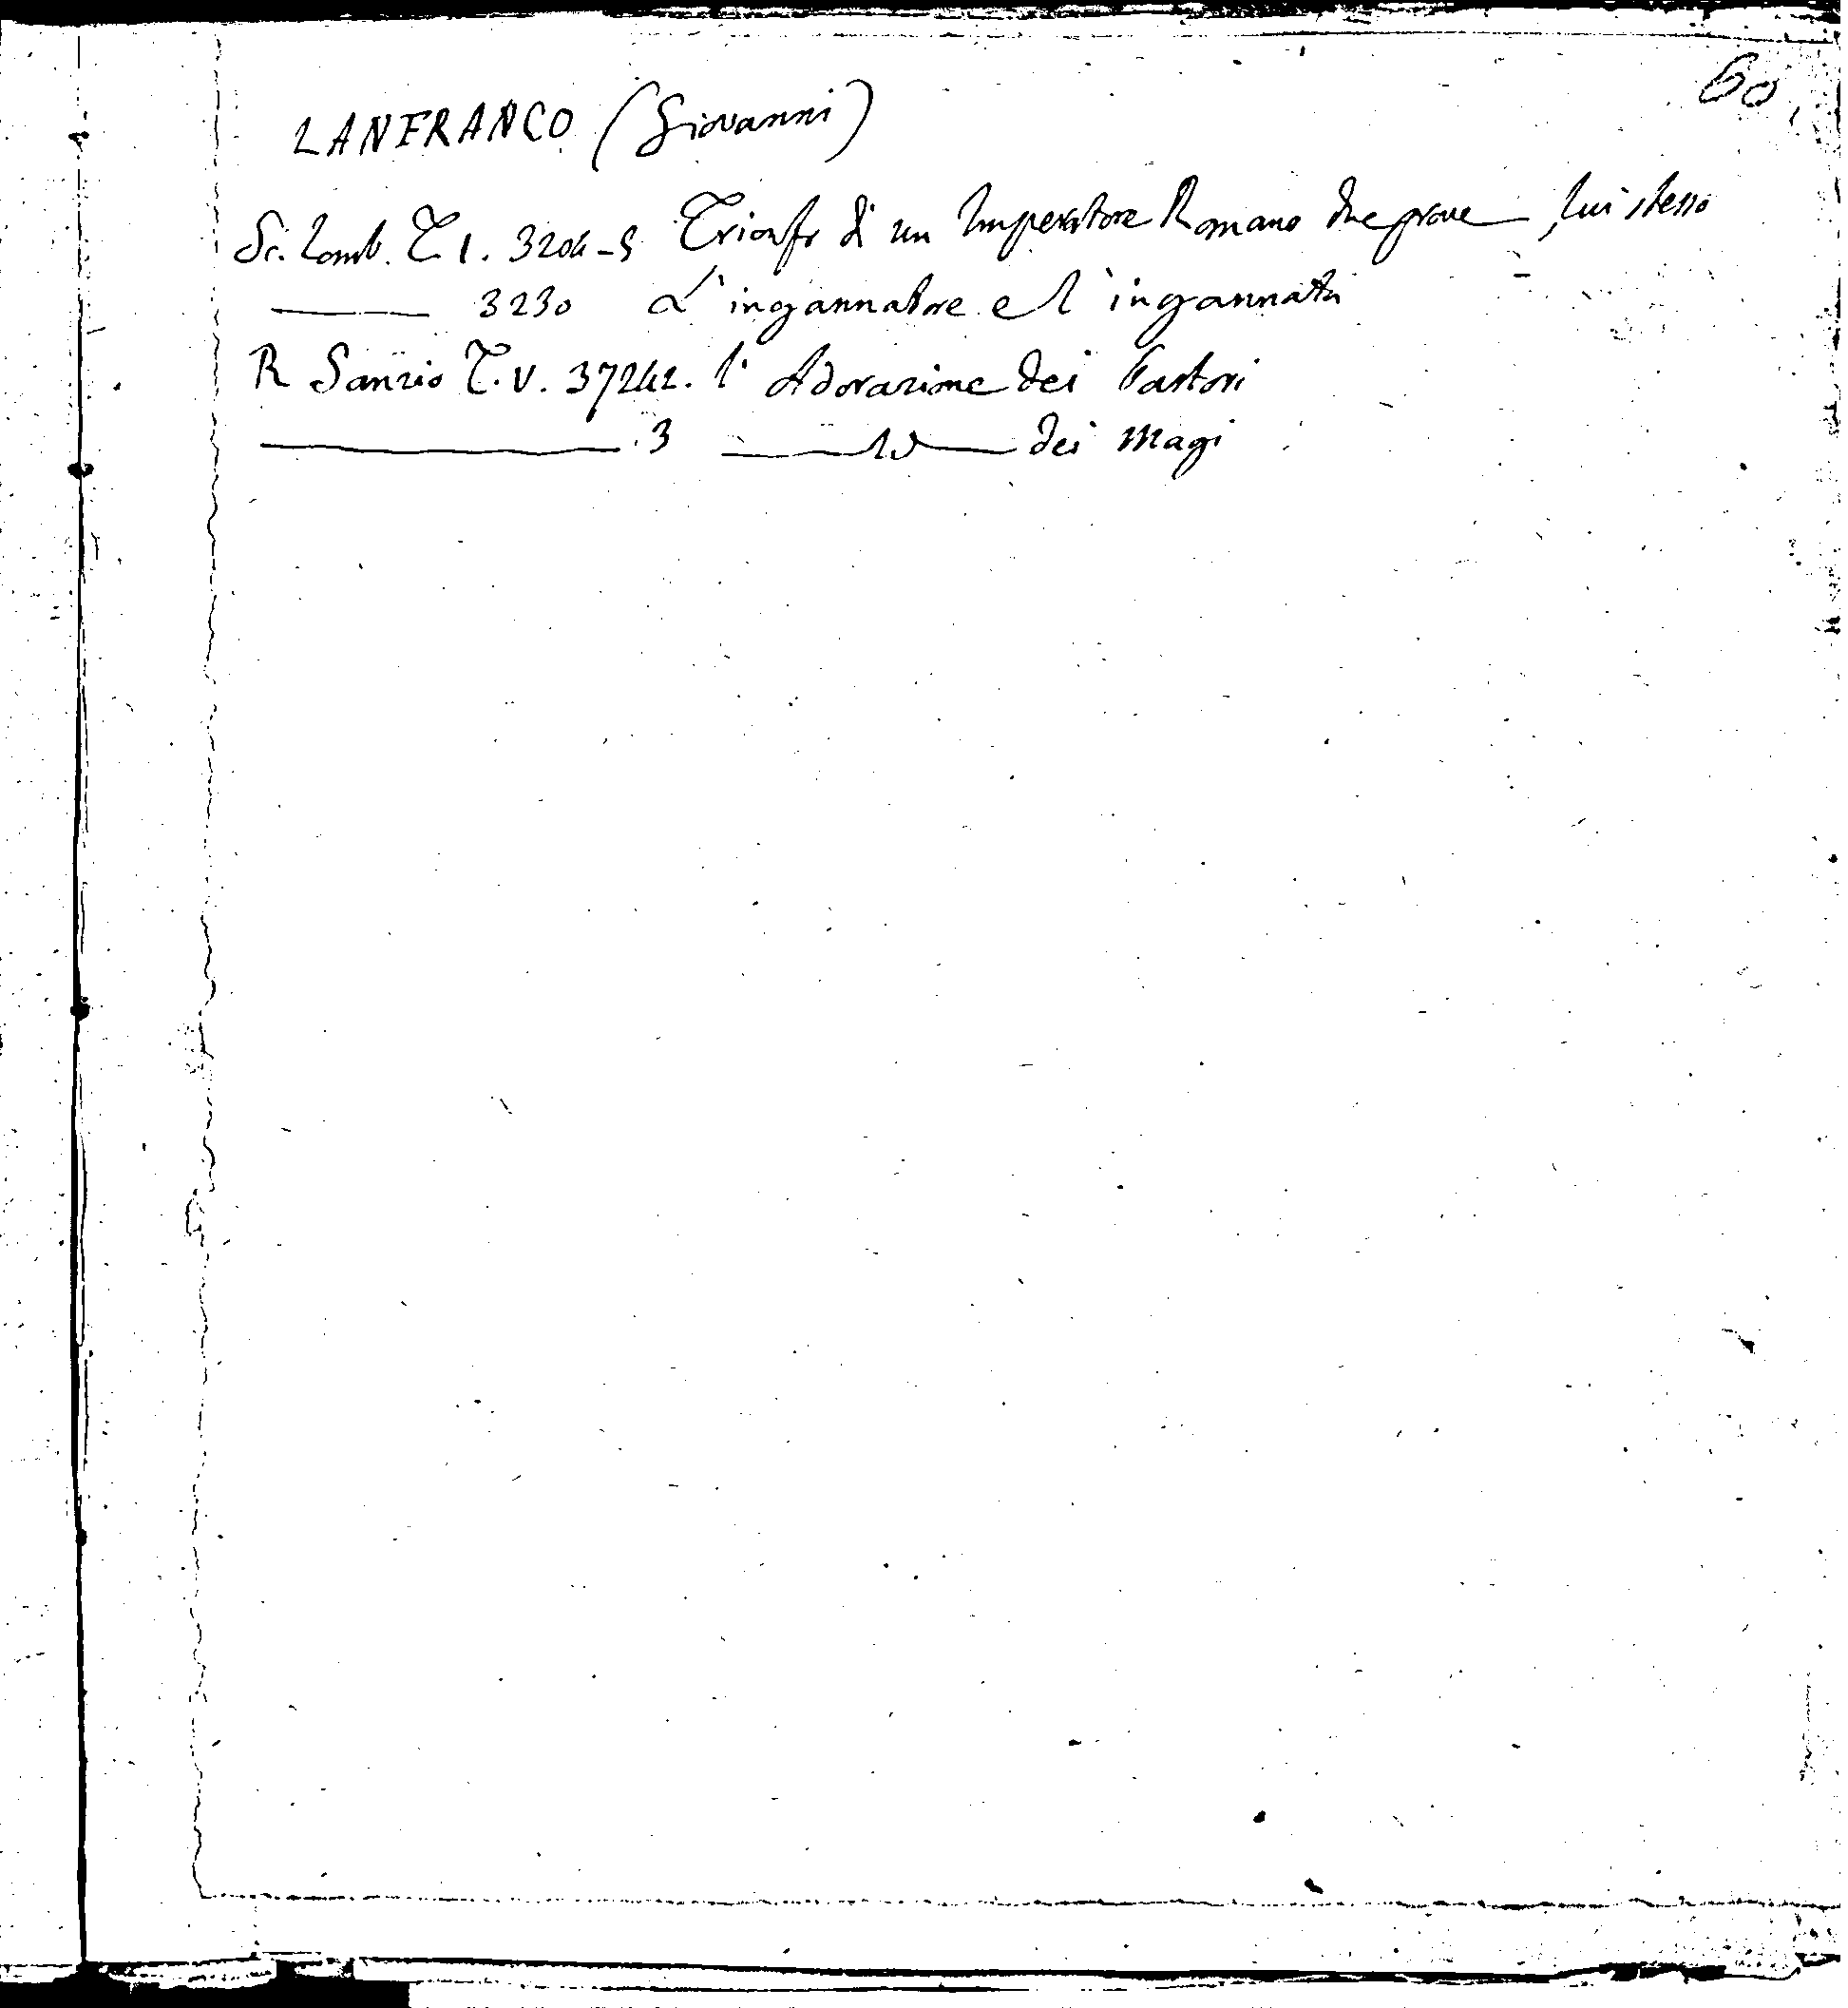 60.
LANFRANCO (Giovanni)
Sc. Lomb. T. I. 3204-5 Trionfo di un Imperatore Romano due prove, lui stesso
——— 3230 L'ingannatore e l'ingannata
R Sanzio T. V. 37242. l'Adorazione dei Pastori
——————— 3 ———Id——— dei Magi